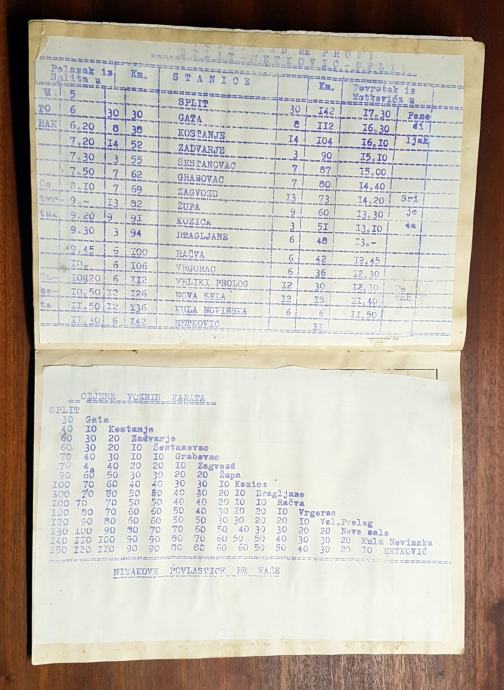 NA PRUZI
SPLIT-METKOVIĆ-SPLIT
Polazak iz Splita u Km. STANICE Km. Povratak iz Metkovića u
U 5 SPLIT 30 142 17.30 Pone
TO 6 30 30 GATA 8 112 16.30 di
RAK 6.20 8 38 KOSTANJE 14 104 16.10 ljak
7.20 14 52 ZADVARJE 3 90 15.10
7.30 3 55 ŠESTANOVAC 7 87 15.00
7.50 7 62 GRABOVAC 7 80 14.40
8.10 7 69 ZAGVOZD 13 73 14.20 Sri
tvr- 9.- 13 82 ŽUPA 9 60 13.30 je
tak 9.20 9 91 KOZICA 3 51 13.10 da
9.30 3 94 DRAGLJANE 6 48 13.-
9.45 6 100 RAČVA 6 42 12.45
10.- 6 106 VRGORAC 6 36 12.30
10.20 6 112 VELIKI PROLOG 12 30 12.10
10.50 12 126 NOVA SELA 12 18 11.40
11.50 12 136 KULA NOVINSKA 6 6 11.50
11.30 6 142 METKOVIĆ 11
CIJENE VOZNIH KARATA
SPLIT
30 Gata
40 10 Kostanje
60 30 20 Zadvarje
60 30 20 10 Šestanovac
70 40 30 10 10 Grabovac
70 40 40 20 20 10 Zagvozd
90 60 50 30 30 20 20 Župa
100 70 60 40 40 30 30 10 Kozica
100 70 60 50 50 40 40 20 10 Dragljane
100 70 70 50 50 40 40 20 10 10 Račva
100 80 70 60 60 50 40 30 20 20 10 Vrgorac
120 90 80 60 60 50 50 30 30 20 20 10 Vel.Prolog
130 100 90 80 70 70 60 50 40 30 30 20 20 Nova sela
140 110 100 90 90 80 70 60 50 50 40 30 30 20 Kula Novinska
150 120 110 90 90 80 60 60 60 50 50 40 30 20 10 METKOVIĆ
NIKAKOVE POVLASTICE NE VAŽE